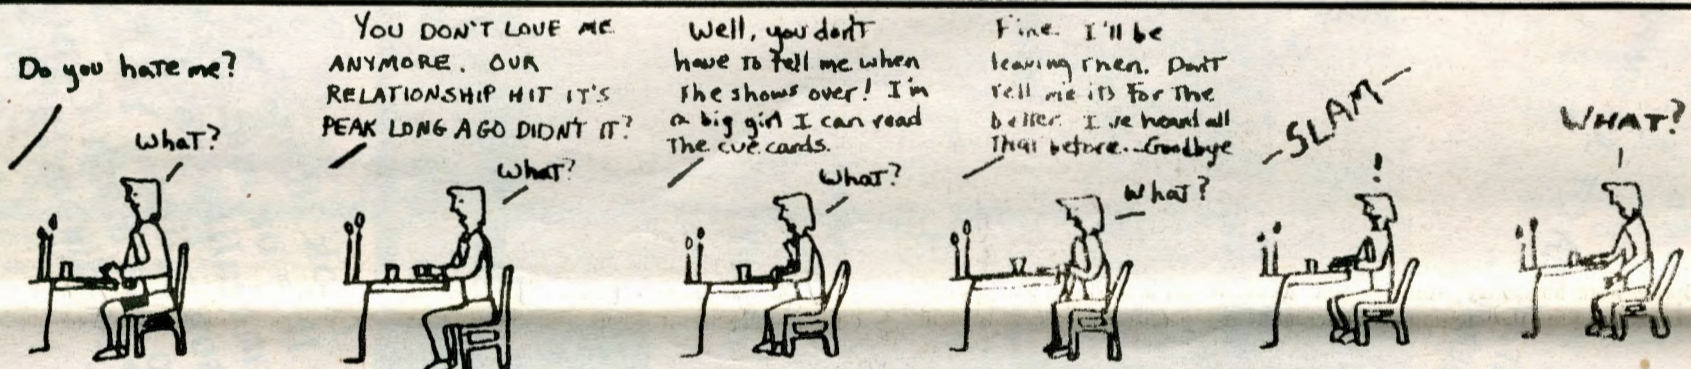 Do you hate me?
What?
YOU DON'T LOVE ME
ANYMORE. OUR
RELATIONSHIP HIT IT'S
PEAK LONG AGO DIDN'T IT?
What?
Well, you don't
have to tell me when
the shows over! I'm
a big girl I can read
The cue cards.
What?
Fine. I'll be
leaving then. Don't
tell me its for the
better. I've heard all
that before...Goodbye
What?
-SLAM-
!
WHAT?